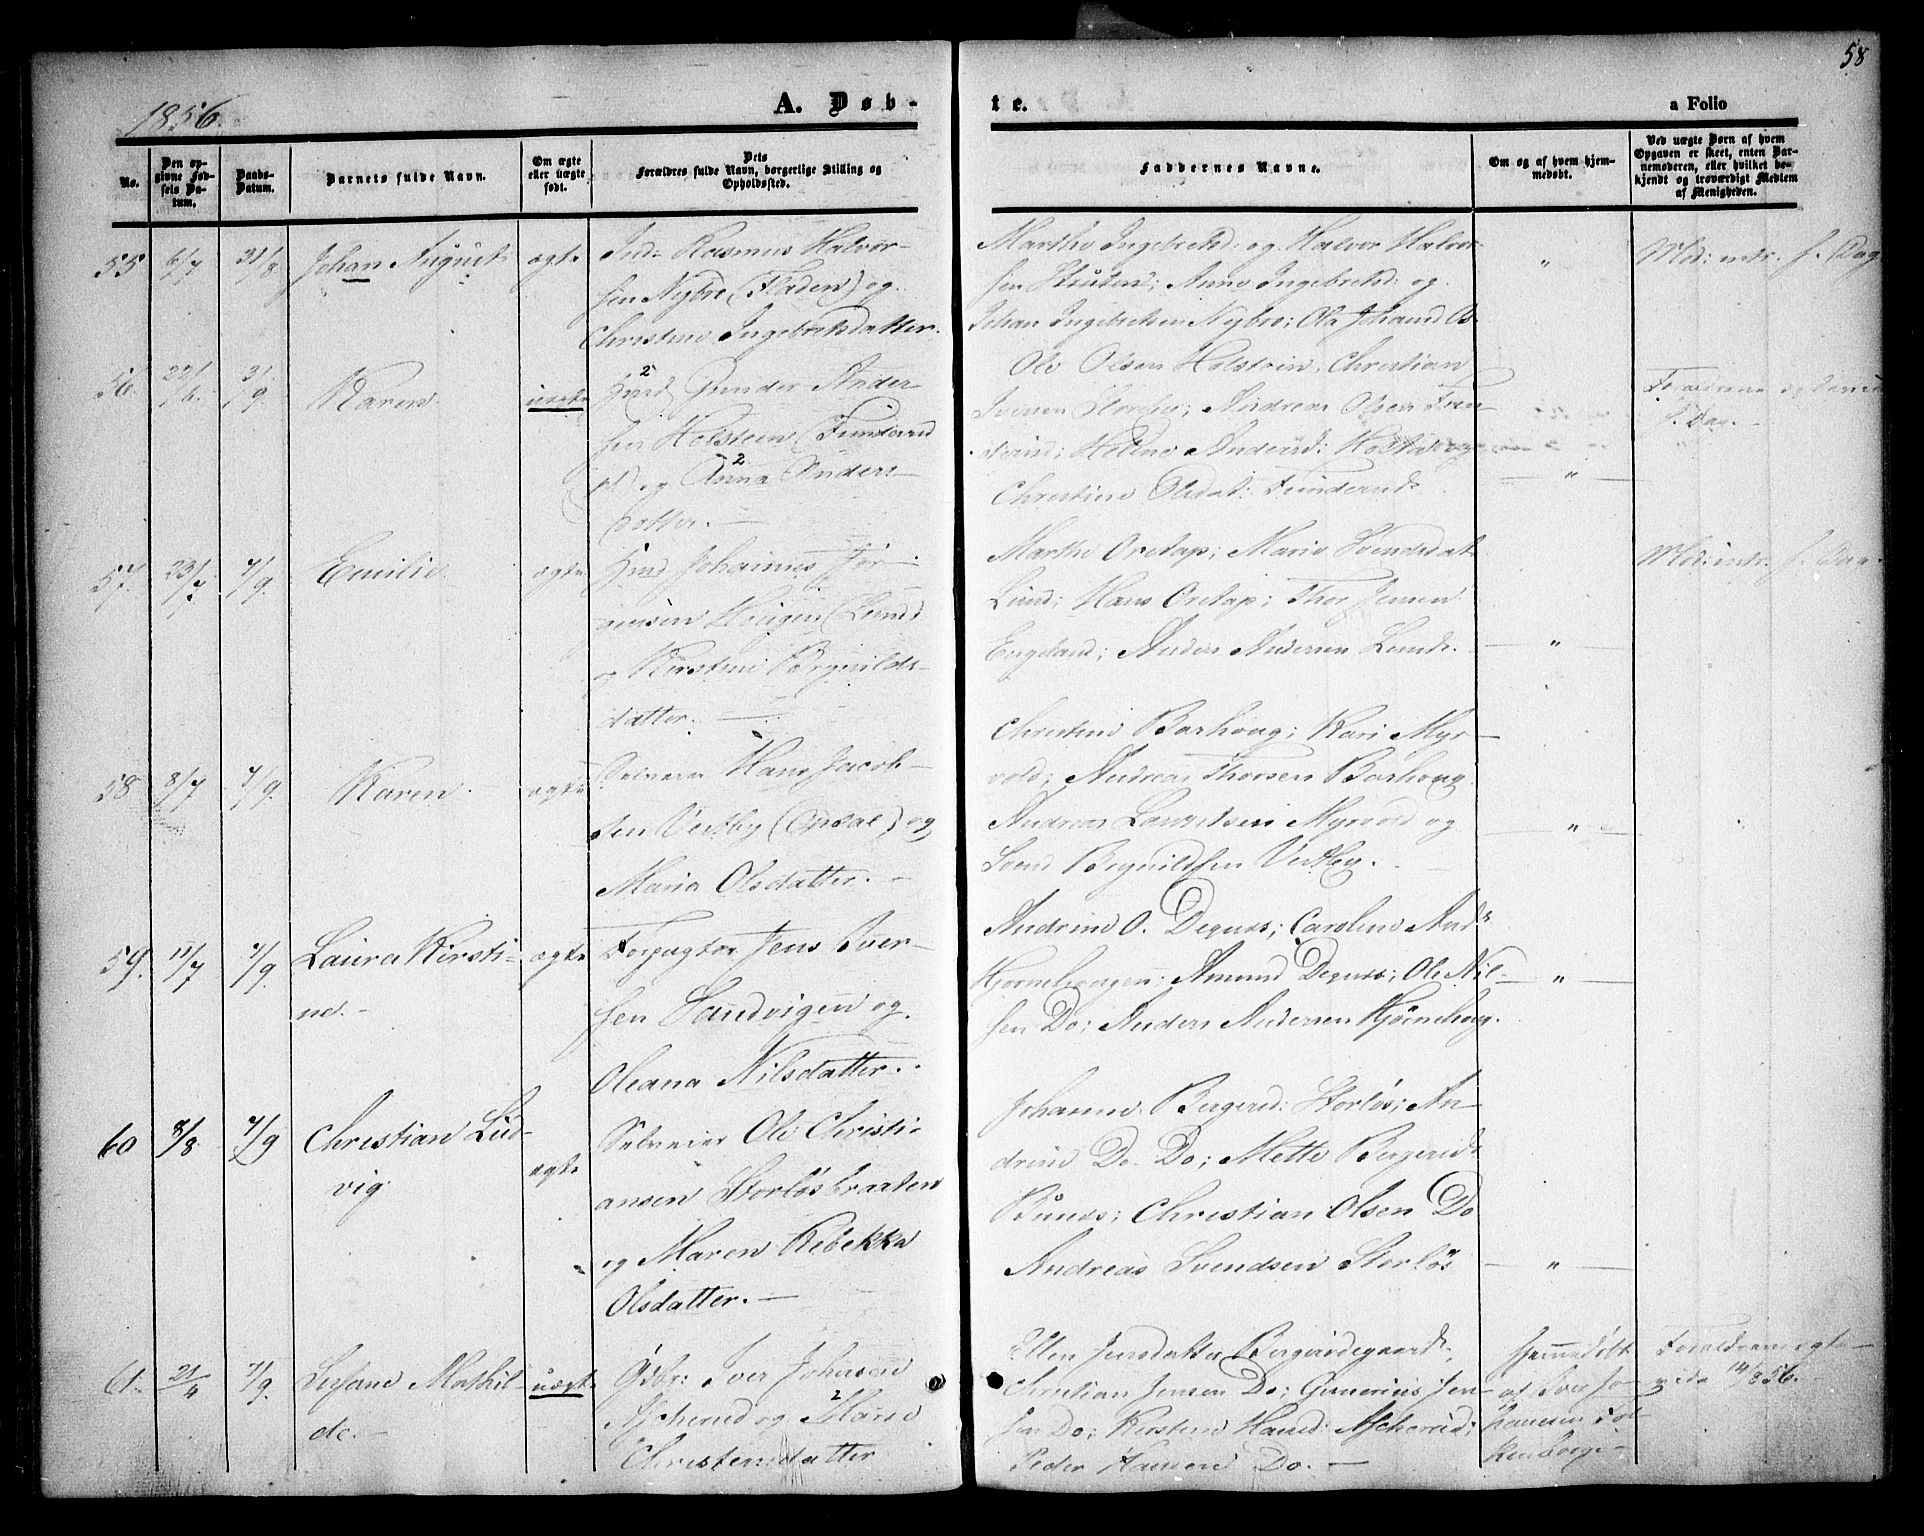 58
1856.
A. Døb-
te.
a Folio
No.
Den op-
givne Fød-
sels Da-
tum.
Daabs-
Datum.
Barnets fulde Navn.
Om ægte
eller uægte
født.
Dets
Forældres fulde Navn, borgerlige Stilling og
Opholdssted.
Faddernes Navne.
Om og af hvem hjem-
medøbt.
Ved uægte Børn af hvem
Opgaven er skeet, enten Bar-
nemoderen, eller hvilket be-
kjendt og troværdigt Medlem
af Menigheden.
55
6/7
31/8
Johan August
ægte
Ind: Rasmus Halvor-
sen Nybro (Fladen) og
Christine Ingebretsdatter.
Marthe Ingebretsd: og Halvor Halvor-
sen; Anne Ingebretsd: og
Johan Ingebretsen Nybro; Ola
"
Mod: intr. s. Dag.
56.
22/6
3/9
Karen
uægte
Gunder Ander-
sen Holsteen
og Anna Anders-
datter.
Ole Olsen Holstein, Christian
Andreas Olsen
Helene Andersd:
Christine Olsdat:
"
Forældrene
s. Dag.
57.
23/7
7/9.
Emilie
ægte
Johannes Jör-
gensen (Lund)
og Kirstine Bergnilds-
datter.
Marthe Oretap; Marie Svendsdat
Lund; Hans Oretap; Thor Jensen
Engeland; Anders Andersen Lund.
"
Mod: intr. s. Dag.
58
8/7
7/9.
Karen
ægte
Hans Jacob-
sen Vestby (Opdal) og
Maria Olsdatter.
Christine Barhoug; Kari Myr-
vold; Andreas Thorsen Barhoug
Andreas Myrvold og
Svend Bergnildsen Vestby.
"
59.
11/7
7/9
Laura Kirsti-
ne.
ægte
Forpagter Jens Iver-
sen Sandvigen og
Oleana Nilsdatter.
Andrine O. Degnæs; Caroline Andr
Hjornehougen; Amund Degnæs; Ole Nil-
sen Do; Anders Andersen Hjörnehoug.
"
60
8/8
7/9
Christian Lud-
vig
ægte
Selveier Ole Christi-
ansen Storlösbraaten
og Maren Rebekka
Olsdatter.
Johanne Bergersd: Storlös; An-
drine Do Do; Mette Bergersd:
Bunæs; Christian Olsen Do
Andreas Svendsen Storlös
"
61.
21/4
7/9.
Mathil-
de.
uægte
Gdbr: Iver Johnsen
Ascherud og Marie
Christensdatter
Ellen Jensdatter Bergerudegaard;
Christian Jensen Do; Gunerius Jen-
sen Do; Kirstine Hansd: Ascherud;
Peder Hansen Do.
hjemmedöbt
af Iver Jo-
hannesen
Forældrene ægte-
viede 14/8 56.